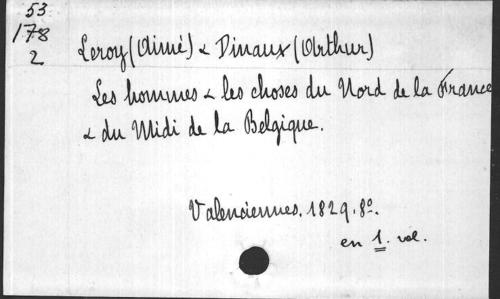 53
178
2
Leroy (Aimé) & Dinaux (Arthur)
Les hommes & les choses du Nord de la France
& du Midi de la Belgique.
Valenciennes. 1829. 8º.
en 1. vol.